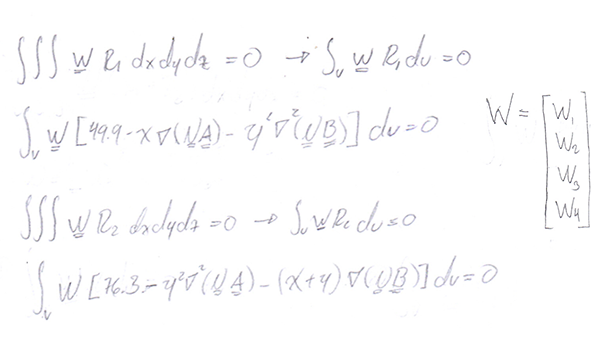 ∫∫∫ W R₁ dxdydz = 0 → ∫ᵥ W R₁ dv = 0
∫ᵥ W [49.9 - x∇(NA) - y²∇²(NB)] dv = 0
W = [W₁ W₂ W₃ W₄]
∫∫∫ W R₂ dxdydz = 0 → ∫ᵥ W R₂ dv = 0
∫ᵥ W [76.3 - y²∇²(NA) - (x+y)∇(NB)] dv = 0